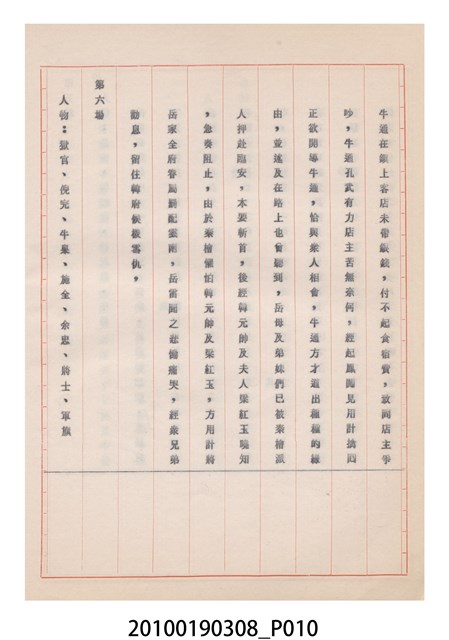 牛通在鎮上客店未帶銀錢，付不起食宿費，故與店主爭
吵，牛通孔武有力店主苦無奈何，經起鳳聞見用計擒而
正欲開導牛通，恰與眾人相會，牛通方才道出種種的緣
由，並述及在路上也曾聽到，岳母及弟妹們已被秦檜派
人押赴臨安，本要斬首，後經韓元帥及夫人梁紅玉曉知
，急奏阻止，由於秦檜懼怕韓元帥及梁紅玉，方用計將
岳家全府眷屬歸配雲南，岳雷聞之悲慟痛哭，經眾兄弟
勸息，留住韓府候機雪仇。
第六場
人物：獄官、倪完、牛皋、施全、余忠、將士、軍旗
20100190308_P010